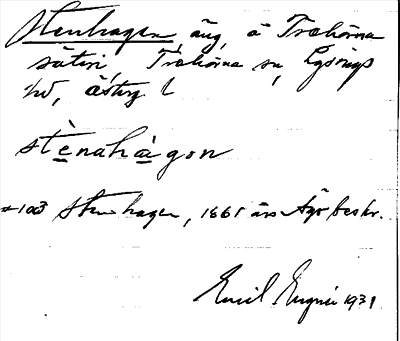 Stenhagen äng å Trehörna
säteri Trehörna sn, Lysings
hd, Östg l
stènahàgon
Stenhagen, 1861 års Ägobeskr.
Emil Ergnér 1931